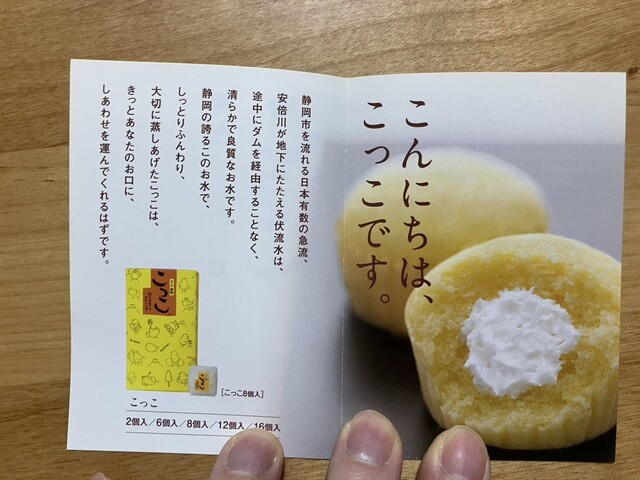 こんにちは、
こっこです。
静岡市を流れる日本有数の急流、
安倍川が地下にたたえる伏流水は、
途中にダムを経由することなく、
清らかで良質なお水です。
静岡の誇るこのお水で、
しっとりふんわり、
大切に蒸しあげたこっこは、
きっとあなたのお口に、
しあわせを運んでくれるはずです。
こっこ
こっこ
[こっこ8個入]
こっこ
2個入/6個入/8個入/12個入/16個入